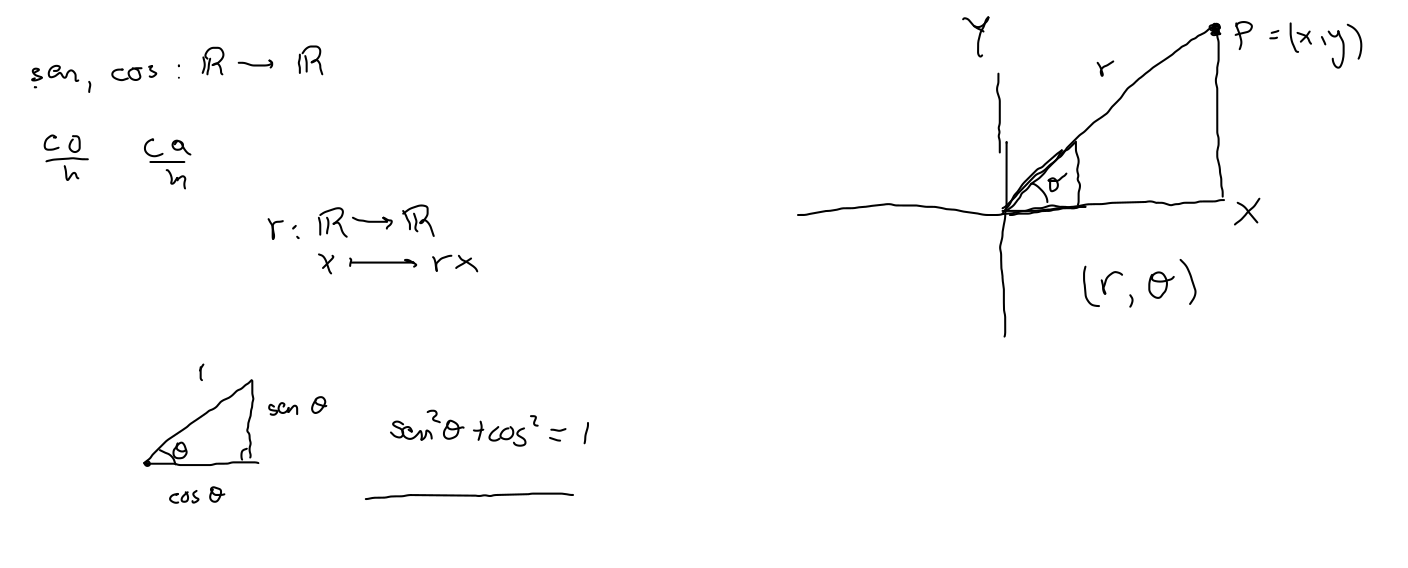 sen, cos : ℝ → ℝ
co/h ca/h
r: ℝ → ℝ
x ↦ rx
1
sen θ
θ
cos θ
sen²θ + cos² = 1
Y
P = (x,y)
r
θ
X
(r, θ)